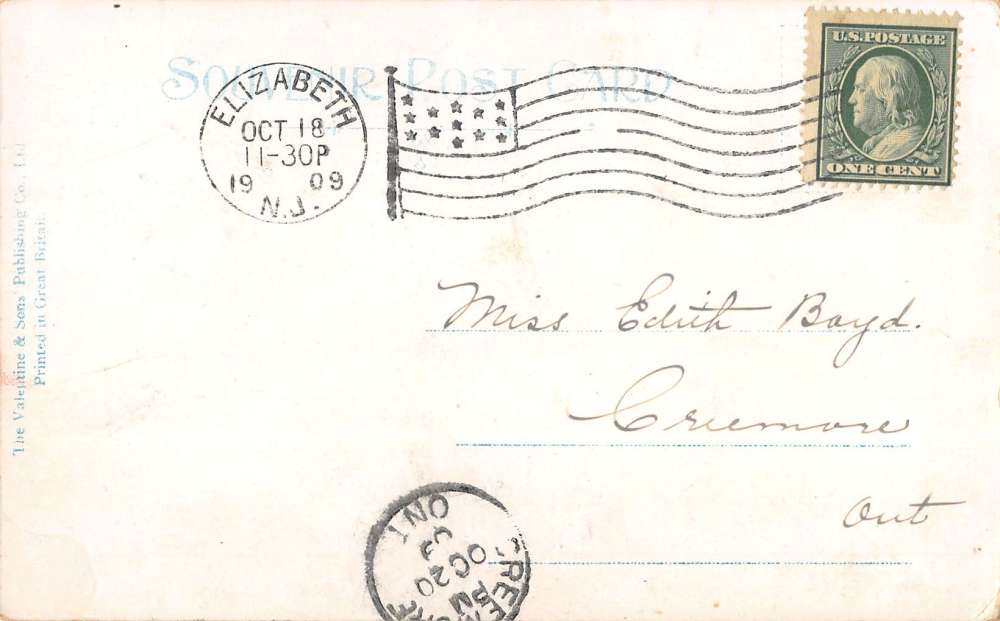 SOUVENIR POST CARD
U.S. POSTAGE
ONE CENT
ELIZABETH
OCT 18
11-30P
19 09
N.J.
Miss Edith Boyd.
Creemore
Ont
CREEMORE
PM
OC 20
09
ONT
The Valentine & Sons' Publishing Co., Ltd.
Printed in Great Britain.